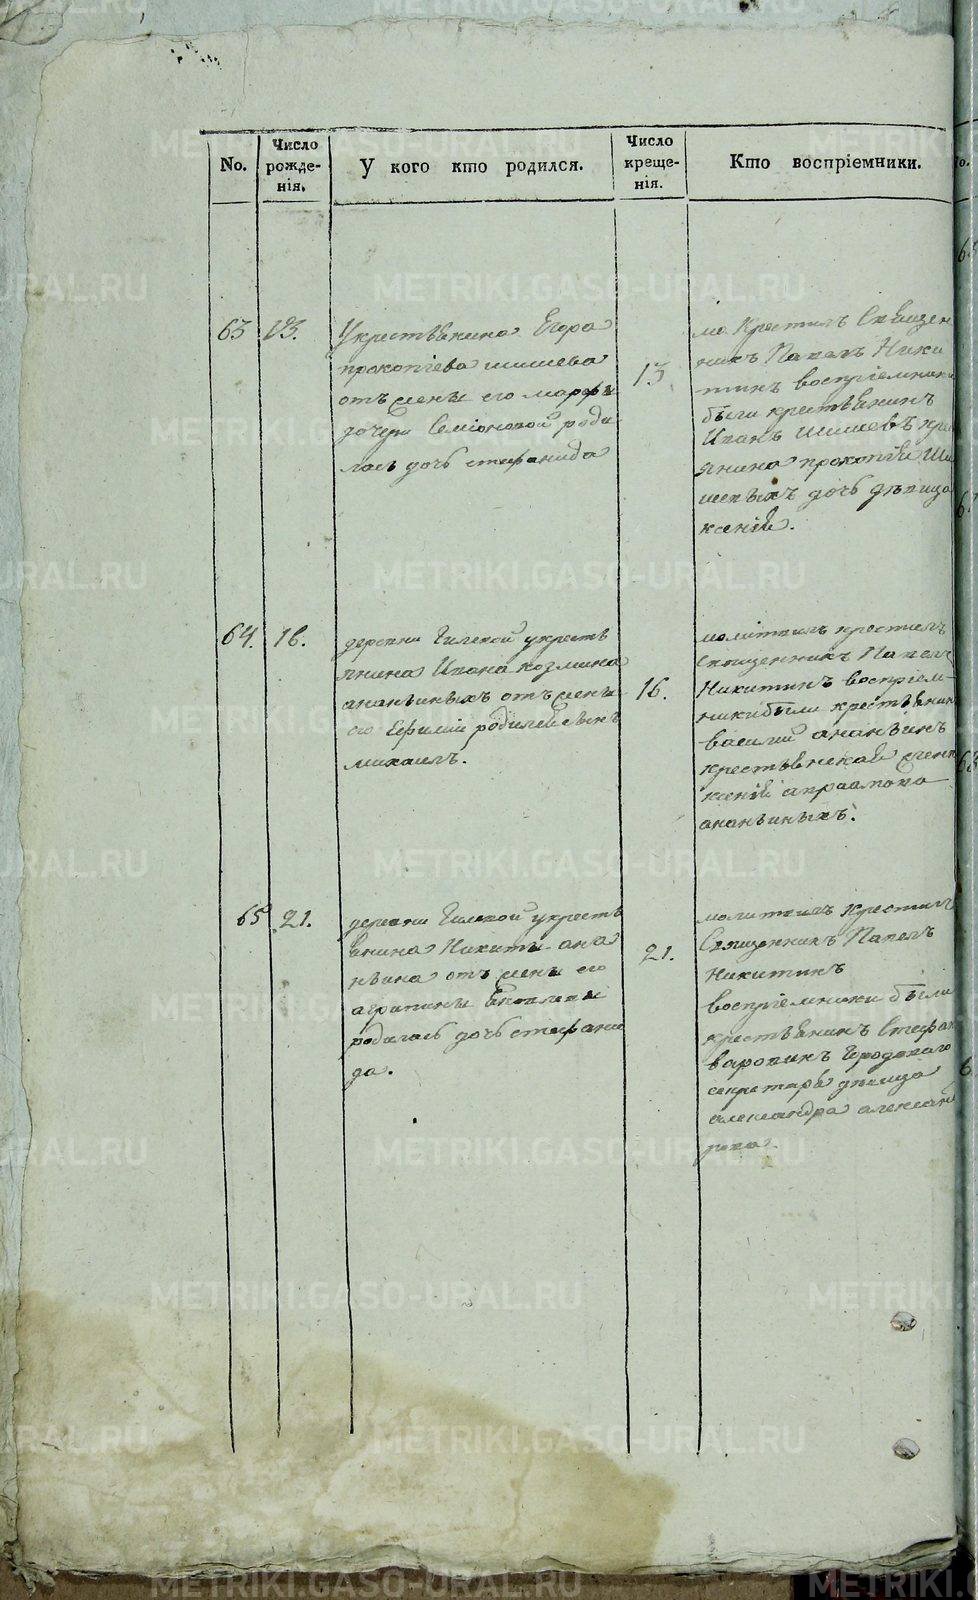 No.
Число рожде- нія.
У кого кто родился.
Число креще- нія.
Кто воспріемники.
63
13.
Укрестьянина Егора
прокопіева шишева
отъ жены его марфы
дочери Семіоновой роди
лась дочь стефанида
13
ма Крестилъ Священ
никъ Павелъ Ники
тинъ воспріемники
были крестьянинъ
Иванъ Шишевъ кре
янина прокопія Ши
шевыхъ дочь дѣвица
ксенія.
64.
16.
деревни укресть
янина Ивана козмина
ананьиныхъ отъ жены
его Ефиміи родился сынъ
михаилъ.
16.
молитвилъ крестилъ
Священникъ Павелъ
Никитинъ воспріем-
ники были крестьянин
василій ананьинъ
крестьянская женк
ксенія авраамова
ананьиныхъ.
65
21.
деревни укресть
янина Никиты ана
ньина отъ жены его
агрипины
родилась дочь стефани
да.
21.
молитвилъ Крестилъ
Священникъ Павелъ
Никитинъ
воспріемники были
крестьянинъ Стефан
Городоваго
секретаря дѣвица
александра александ
рова.
METRIKI.GASO-URAL.RU